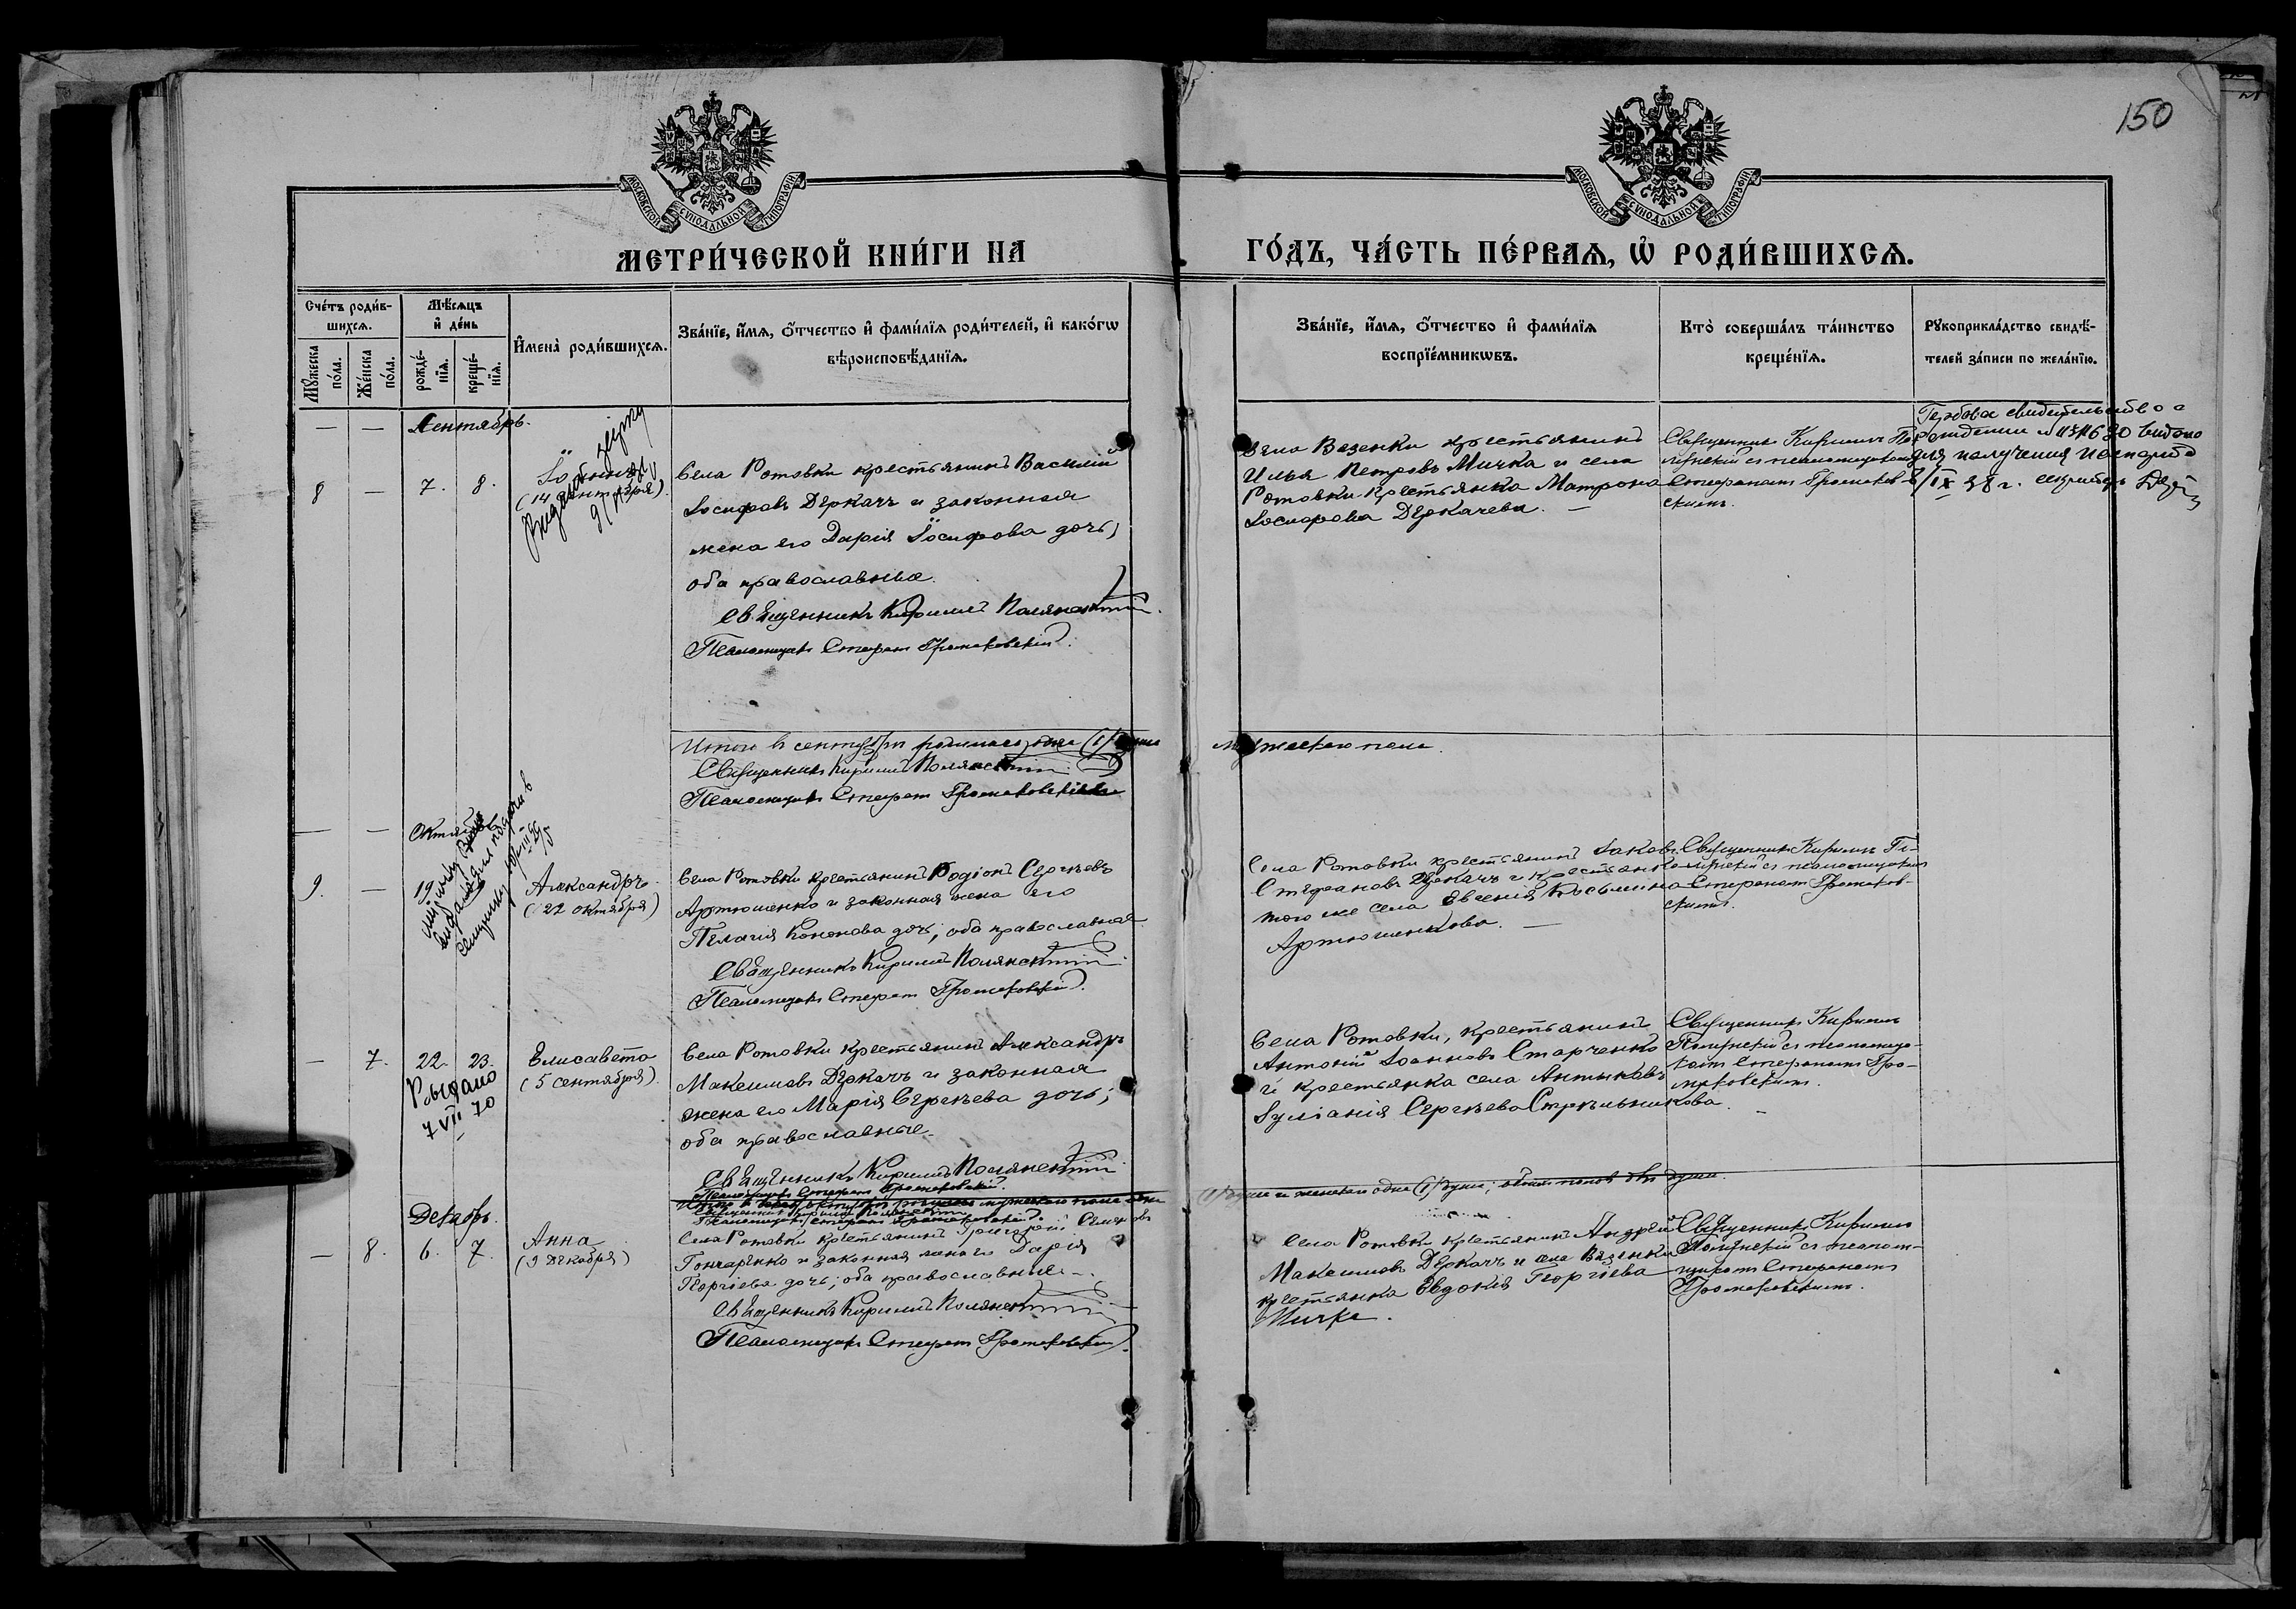 150
МОСКОВСКОЙ СѴНОДАЛЬНОЙ ТИПОГРАФІИ
МОСКОВСКОЙ СѴНОДАЛЬНОЙ ТИПОГРАФІИ
МЕТРИ́ЧЕСКОЙ КНИ́ГИ НА
ГО́ДЪ, ЧА́СТЬ ПЕ́РВАѦ, Ѽ РОДИ́ВШИХСѦ.
Сче́тъ роди́в-
шихсѧ.
Мꙋ́жеска по́ла.
Же́нска по́ла.
Мѣ́сѧцъ
и҆ де́нь
рожде́-
нїѧ.
креще́-
нїѧ.
И҆мена̀ роди́вшихсѧ.
Зва́нїе, и҆́мѧ, ѻ҆́тчество и҆ фами́лїѧ роди́телей, и҆ како́гѡ
вѣроисповѣ́данїѧ.
Зва́нїе, и҆́мѧ, ѻ҆́тчество и҆ фами́лїѧ
воспрїе́мникѡвъ.
Кто̀ соверша́лъ та́инство
креще́нїѧ.
Рꙋкоприкла́дство свидѣ́-
телей за́писи по жела́нїю.
— — Сентябрь.
8 — 7. 8.
(14 сентября)
Села Ротовки крестьянинъ Василій
Іосифовъ Деркачъ и законная
жена его Дарія Іосифова дочь,
оба православные.
Священникъ Кириллъ Полянскій
Псаломщикъ Стефанъ Громаковскій.
Села Вязенки крестьянинъ
Илья Петровъ Мичка и села
Ротовки крестьянка Матрона
Іосифова Деркачева. —
Священникъ Кириллъ По-
лянскій съ псаломщикомъ
Стефаномъ Громаков-
скимъ.
свидетельство о
рождении
для получения паспорта
Итого въ сентябрѣ родилась одна (1) душа
мужескаго пола.
Священникъ Кириллъ Полянскій
Псаломщикъ Стефанъ Громаковскій
— — Октябрь
9. — 19
Александръ
(22 октября)
Села Ротовки крестьянинъ Родіонъ Сергѣевъ
Артюшенко и законная жена его
Пелагія Кононова дочь; оба православные
Священникъ Кириллъ Полянскій
Псаломщикъ Стефанъ Громаковскій.
Села Ротовки крестьянинъ Іаковъ
Стефановъ Деркачъ и крестьянка
того же села Евгенія Косьмина
Артюшенкова. —
Священникъ Кириллъ По-
лянскій съ псаломщикомъ
Стефаномъ Громаков-
скимъ.
— 7. 22. 23.
Выдано
7 VII 70
Елисавета
(5 сентября).
Села Ротовки крестьянинъ Александръ
Максимовъ Деркачъ и законная
жена его Марія Сергѣева дочь;
оба православные.
Священникъ Кириллъ Полянскій
Псаломщикъ Стефанъ Громаковскій.
Села Ротовки, крестьянинъ
Антоній Іоанновъ Старченко
и крестьянка села Антыковъ
Іуліанія Сергѣева Стрѣльникова. —
Священникъ Кириллъ
Полянскій съ псаломщи-
комъ Стефаномъ Гро-
маковскимъ.
(1) душа и женскаго одна (1) душа; обоихъ половъ двѣ души.
Священникъ Кириллъ Полянскій
Псаломщикъ Стефанъ Громаковскій.
Декабрь.
— 8. 6. 7.
Анна
(9 декабря)
Села Ротовки крестьянинъ Григорій
Гончаренко и законная жена его Дарія
Георгіева дочь; оба православные. —
Священникъ Кириллъ Полянскій
Псаломщикъ Стефанъ Громаковскій.
Села Ротовки крестьянинъ Андрей
Максимовъ Деркачъ и села Вязенки
крестьянка Евдокія Георгіева
Мичка.
Священникъ Кириллъ
Полянскій съ псалом-
щикомъ Стефаномъ
Громаковскимъ.